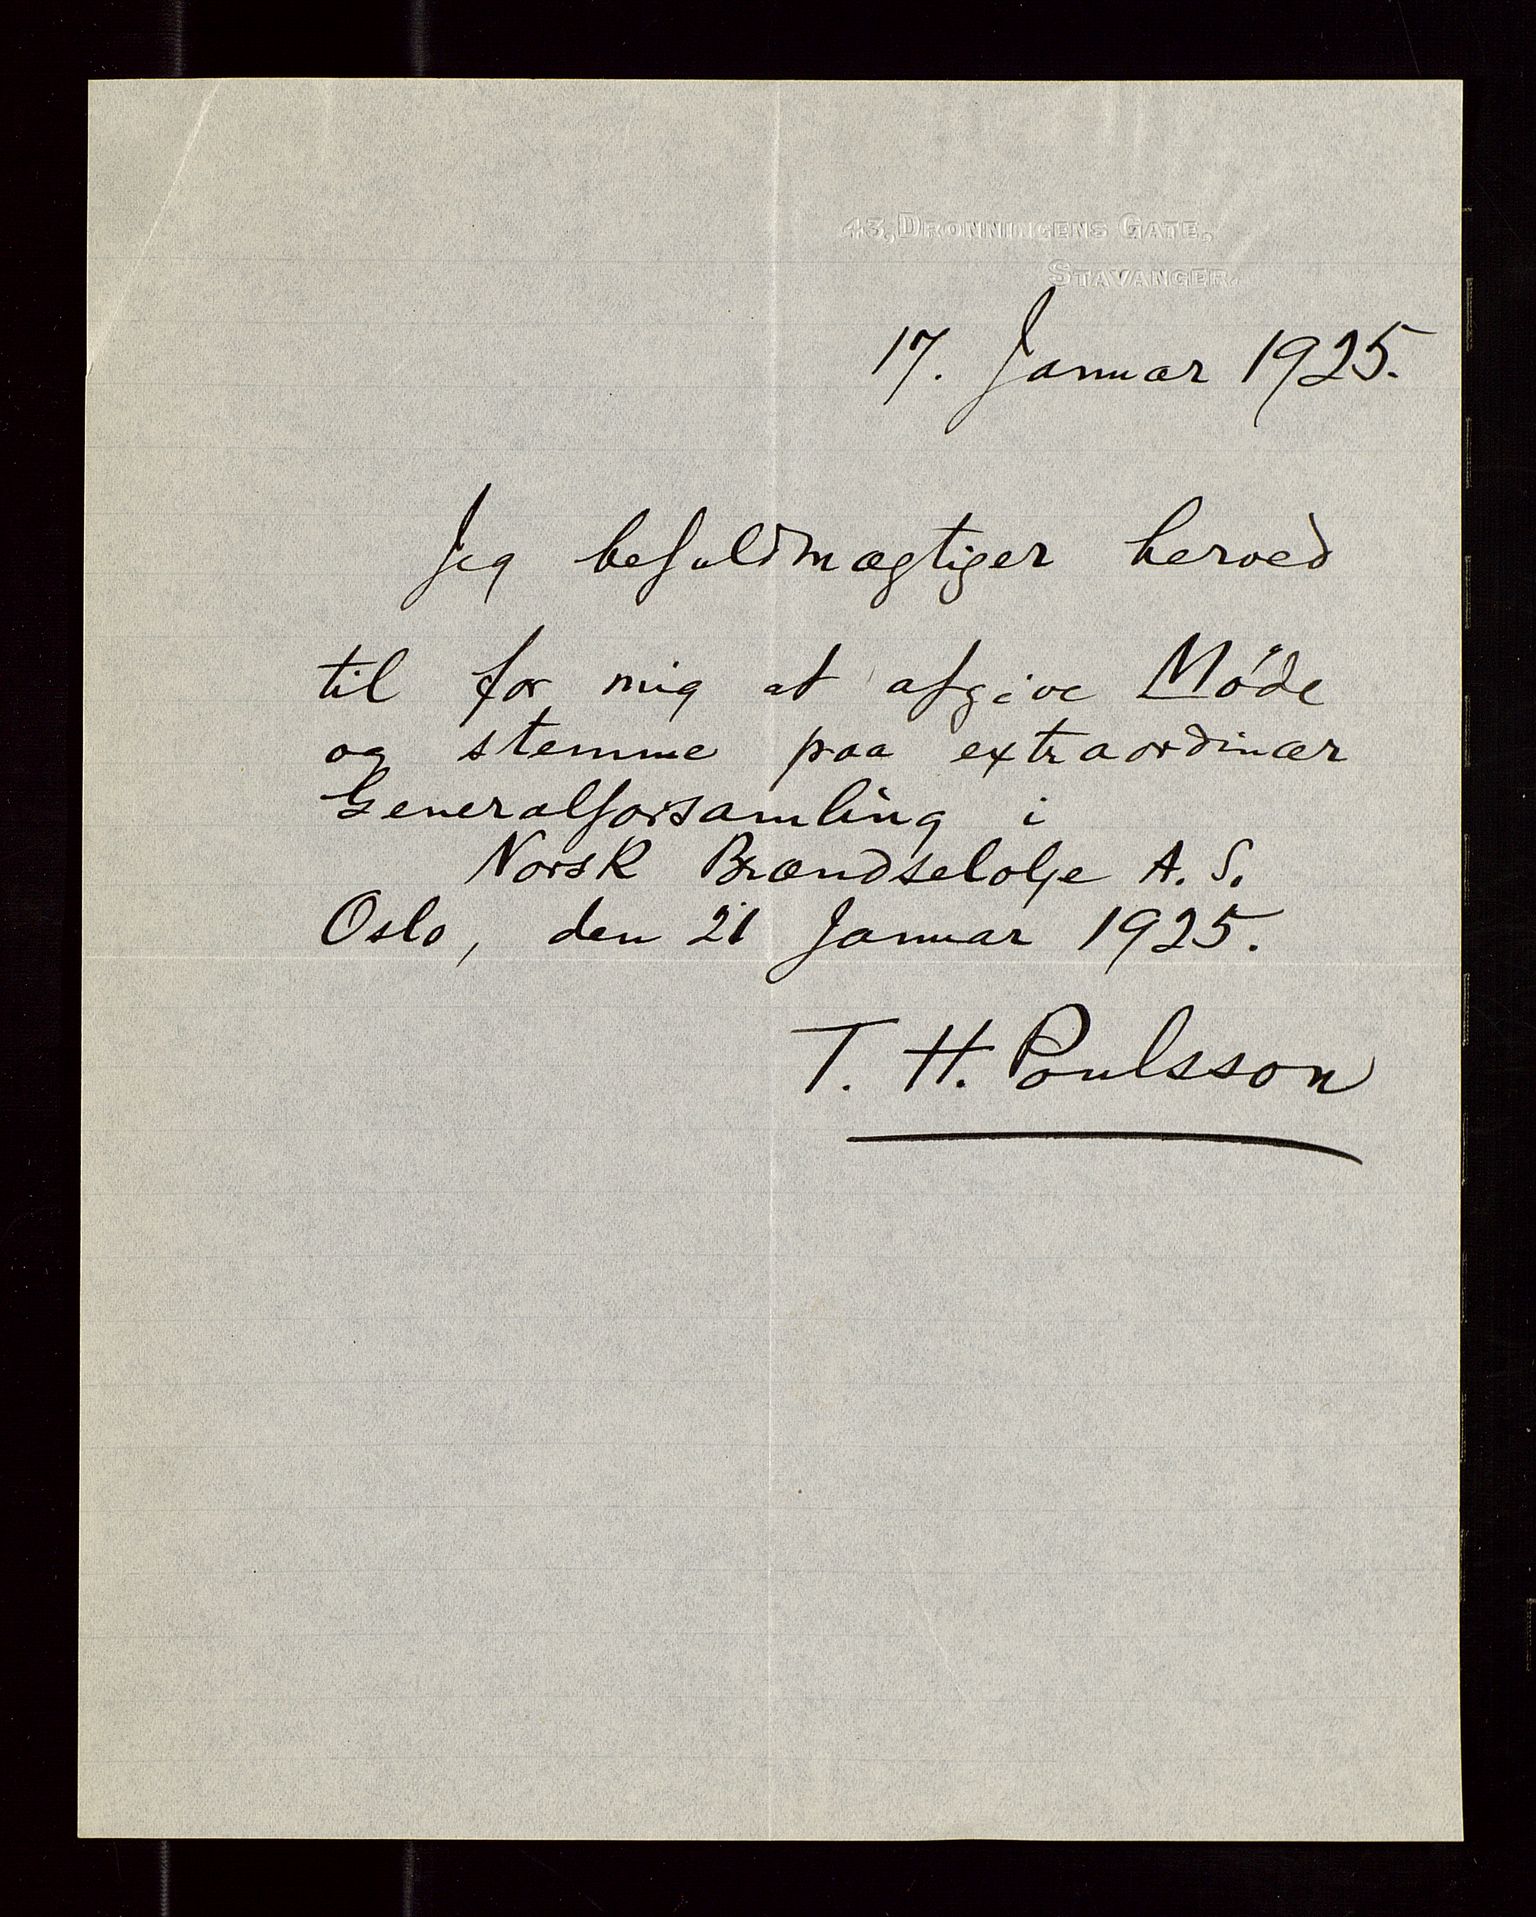 43, DRONNINGENS GATE,
STAVANGER.
17. Januar 1925.
Jeg befuldmægtiger herved
til for mig at afgive Møde
og stemme paa extraordinær
Generalforsamling i
Norsk Brændselolje A. S.
Oslo, den 21 Januar 1925.
T. H. Poulsson